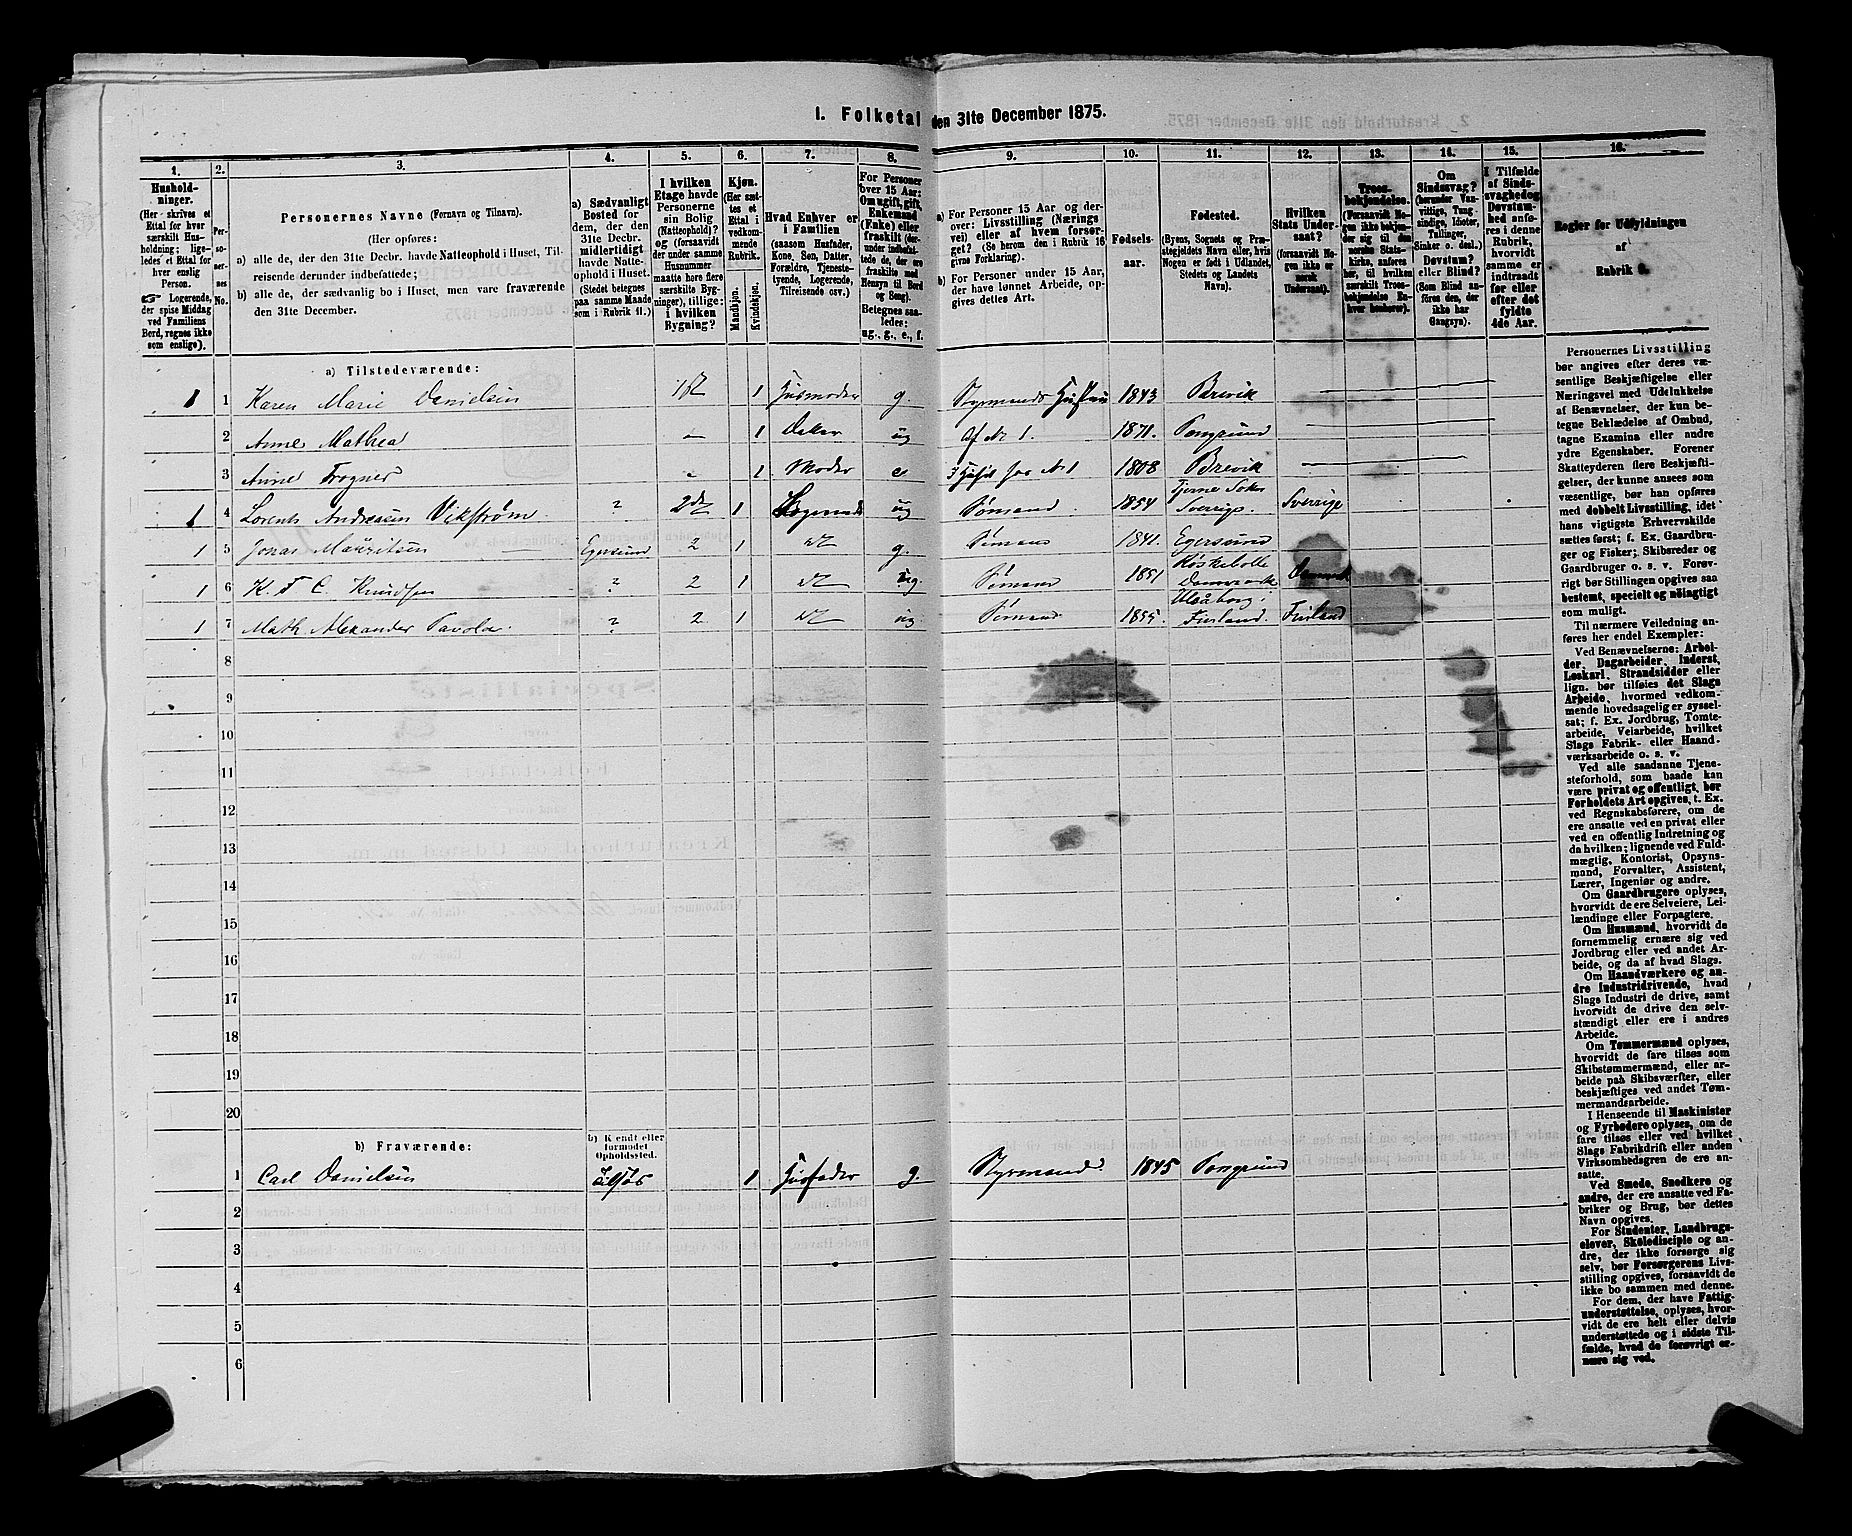 1. Folketal den 31te December 1875.
1. 2. 3. 4. 5. 6. 7. 8. 9. 10. 11. 12. 13. 14. 15. 16.
Hushold-
ninger.
(Her skrives et
Ettal for hver
særskilt Hus-
holdning; lige-
ledes et Ettal for
hver enslig
Person.
☞ Logerende,
der spise Middag
ved Familiens
Bord, regnes ikke
som enslige).
Per-
so-
ner-
nes
No.
Personernes Navne (Fornavn og Tilnavn).
(Her opføres:
a) alle de, der den 31te Decbr. havde Natteophold i Huset, Til-
reisende derunder indbefattede;
b) alle de, der sædvanlig bo i Huset, men vare fraværende
den 31te December.
a) Sædvanligt
Bosted for
dem, der den
31te Decbr.
midlertidigt
havde Natte-
ophold i Huset.
(Stedet betegnes
paa samme Maade
som i Rubrik 11.)
I hvilken
Etage havde
Personerne
sin Bolig
(Natteophold)?
og (forsaavidt
der under samme
Husnummer
maatte høre flere
særskilte Byg-
ninger), tillige:
i hvilken
Bygning?
Kjøn.
(Her sæt-
tes et
Ettal i
vedkom-
mende
Rubrik.
Mandkjøn.
Kvindekjøn.
Hvad Enhver er
i Familien
(saasom Husfader,
Kone, Søn, Datter,
Forældre, Tjeneste-
tyende, Logerende,
Tilreisende osv.)
For Personer
over 15 Aar:
Om ugift, gift,
Enkemand
(Enke) eller
fraskilt (der-
under indbefat-
tede de, der ere
fraskilte med
Hensyn til Bord
og Seng).
Betegnes saa-
ledes:
ug., g., e., f.
a) For Personer 15 Aar og der-
over: Livsstilling (Nærings
vei) eller af hvem forsør-
get? (Se herom den i Rubrik 16
givne Forklaring).
b) For Personer under 15 Aar,
der have lønnet Arbeide, op-
gives dettes Art.
Fødsels-
aar.
Fødested.
(Byens, Sognets og Præ-
stegjeldets Navn eller, hvis
Nogen er født i Udlandet,
Stedets og Landets
Navn).
Hvilken
Stats Under-
saat?
(forsaavidt No-
gen ikke er
norsk
Undersaat).
Troes-
bekjendelse.
(Forsaavidt No-
gen ikke bekjen-
der sig til den
norske Stats-
kirke, anføres
her, til hvilken
særskilt Troes-
bekjendelse En-
hver henhører).
Om
Sindssvag?
(herunder Van-
vittige, Tung-
sindige, Idioter,
Tullinger,
Sinker o. desl.)
Døvstum?
eller Blind?
(Som Blind an-
føres den, der
ikke har
Gangsyn).
I Tilfælde
af Sinds-
svaghed og
Døvstum-
hed anfø-
res i denne
Rubrik,
hvorvidt
samme er
indtraadt
før eller
efter det
fyldte
4de Aar.
Regler for Udfyldningen
af
Rubrik 9.
a) Tilstedeværende:
1 1 Karen Marie Danielsen 1st 1 Husmoder g. Styrmands Hustru 1843 Brevik
2 Anne Mathea 1 Datter ug Af No 1. 1871. Porsgrund
3 Anne Trogner 1 Moder e No 1 1808 Brevik
1 4 Lorents Andreasen Vikstrøm ? 2de 1 Logerende ug Sømand 1854 Sverrige. Sverrige
1 5 Jonas Mauritsen Egersund 2 1 do g. Sømand 1841. Egersund
1 6 K. F. C. Knudsen ? 2 1 do ug. Sømand 1851 Røskebolle Danmark Danmark
1 7 Math Alexander Pavola. ? 2 1 do ug. Sømand 1855. Uleåborg i Finland. Finland
8
9
10
11
12
13
14
15
16
17
18
19
20
b) Fraværende:
b) Kjendt eller
formodet
Opholdssted.
1 Carl Danielsen Tilsjøs 1 Husfader g. Styrmand 1845 Porsgrund
2
3
4
5
6
Personernes Livsstilling
bør angives efter deres væ-
sentlige Beskjæftigelse eller
Næringsvei med Udelukkelse
af Benævnelser, der kun be-
tegne Beklædelse af Ombud,
tagne Examina eller andre
ydre Egenskaber. Forener
Skatteyderen flere Beskjæfti-
gelser, der kunne ansees som
væsentlige, bør han opføres
med dobbelt Livsstilling, idet
hans vigtigste Erhvervskilde
sættes først; f. Ex. Gaardbru-
ger og Fisker; Skibsreder og
Gaardbruger o. s. v. Forøv-
rigt bør Stillingen opgives saa
bestemt, specielt og nøiagtigt
som muligt.
Til nærmere Veiledning an-
føres her endel Exempler:
Ved Benævnelserne: Arbei-
der, Dagarbeider, Inderst,
Løskarl, Strandsidder eller
lign. bør tilføies det Slags
Arbeide, hvormed vedkom-
mende hovedsagelig er syssel-
sat; f. Ex. Jordbrug, Tomte-
arbeide, Veiarbeide, hvilket
Slags Fabrik- eller Haand-
værksarbeide o. s. v.
Ved alle saadanne Tjene-
steforhold, som baade kan
være privat og offentligt, bør
Forholdets Art opgives, t. Ex.
ved Regnskabsførere, om de
ere ansatte ved en privat eller
ved en offentlig Indretning og
da hvilken; lignende ved Fuld-
mægtig, Kontorist, Opsyns-
mand, Forvalter, Assistent,
Lærer, Ingeniør og andre.
Om Gaardbrugere oplyses,
hvorvidt de ere Selveiere, Lei-
lændinge eller Forpagtere.
Om Husmænd, hvorvidt de
fornemmelig ernære sig ved
Jordbrug eller ved andet Ar-
beide, og da af hvad Slags.
Om Haandværkere og an-
dre Industridrivende, hvad
Slags Industri de drive, samt
hvorvidt de drive den selv-
stændigt eller ere i andres
Arbeide.
Om Tømmermænd oplyses,
hvorvidt de fare tilsøs som
Skibstømmermænd, eller ar-
beide paa Skibsværfter, eller
beskjæftiges ved andet Tøm-
mermandsarbeide.
I Henseende til Maskinister
og Fyrbødere oplyses, om de
fare tilsøs eller ved hvilket
Slags Fabrikdrift eller anden
Virksomhedsgren de ere an-
satte.
Ved Smede, Snedkere og
andre, der ere ansatte ved Fa-
briker og Brug, bør dettes
Navn opgives.
For Studenter, Landbrugs-
elever, Skoledisciple og an-
dre, der ikke forsørge sig
selv, bør Forsørgerens Livs-
stilling opgives, forsaavidt de
ikke bo sammen med denne.
For dem, der have Fattig-
understøttelse, oplyses, hvor-
vidt de ere helt eller delvis
understøttede og i sidste Til-
fælde, hvad de forøvrigt er-
nære sig ved.